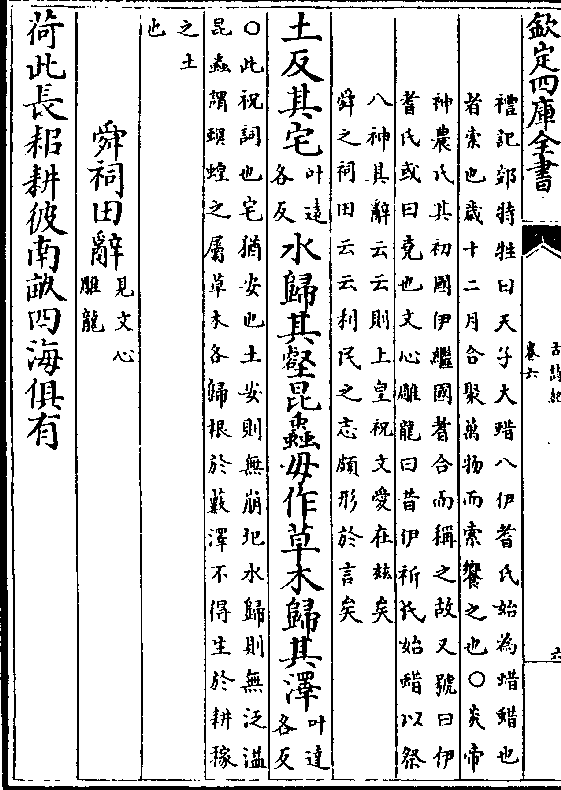 欽定四庫全書
古詩紀
卷六
六
禮記郊特牲曰天子大蜡八伊耆氏始為蜡蜡也
者索也歲十二月合聚萬物而索饗之也○炎帝
神農氏其初國伊繼國耆合而稱之故又號曰伊
耆氏或曰堯也文心雕龍曰昔伊祈氏始蜡以祭
八神其辭云云則上皇祝文爰在兹矣
舜之祠田云云利民之志頗形於言矣
土反其宅叶達各反水歸其壑昆蟲毋作草木歸其澤叶達各反
○此祝詞也宅猶安也土安則無崩圯水歸則無泛溢
昆蟲謂螟蝗之屬草木各歸根於藪澤不得生於耕稼
之土
也
舜祠田辭見文心雕龍
荷此長耜耕彼南畝四海俱有